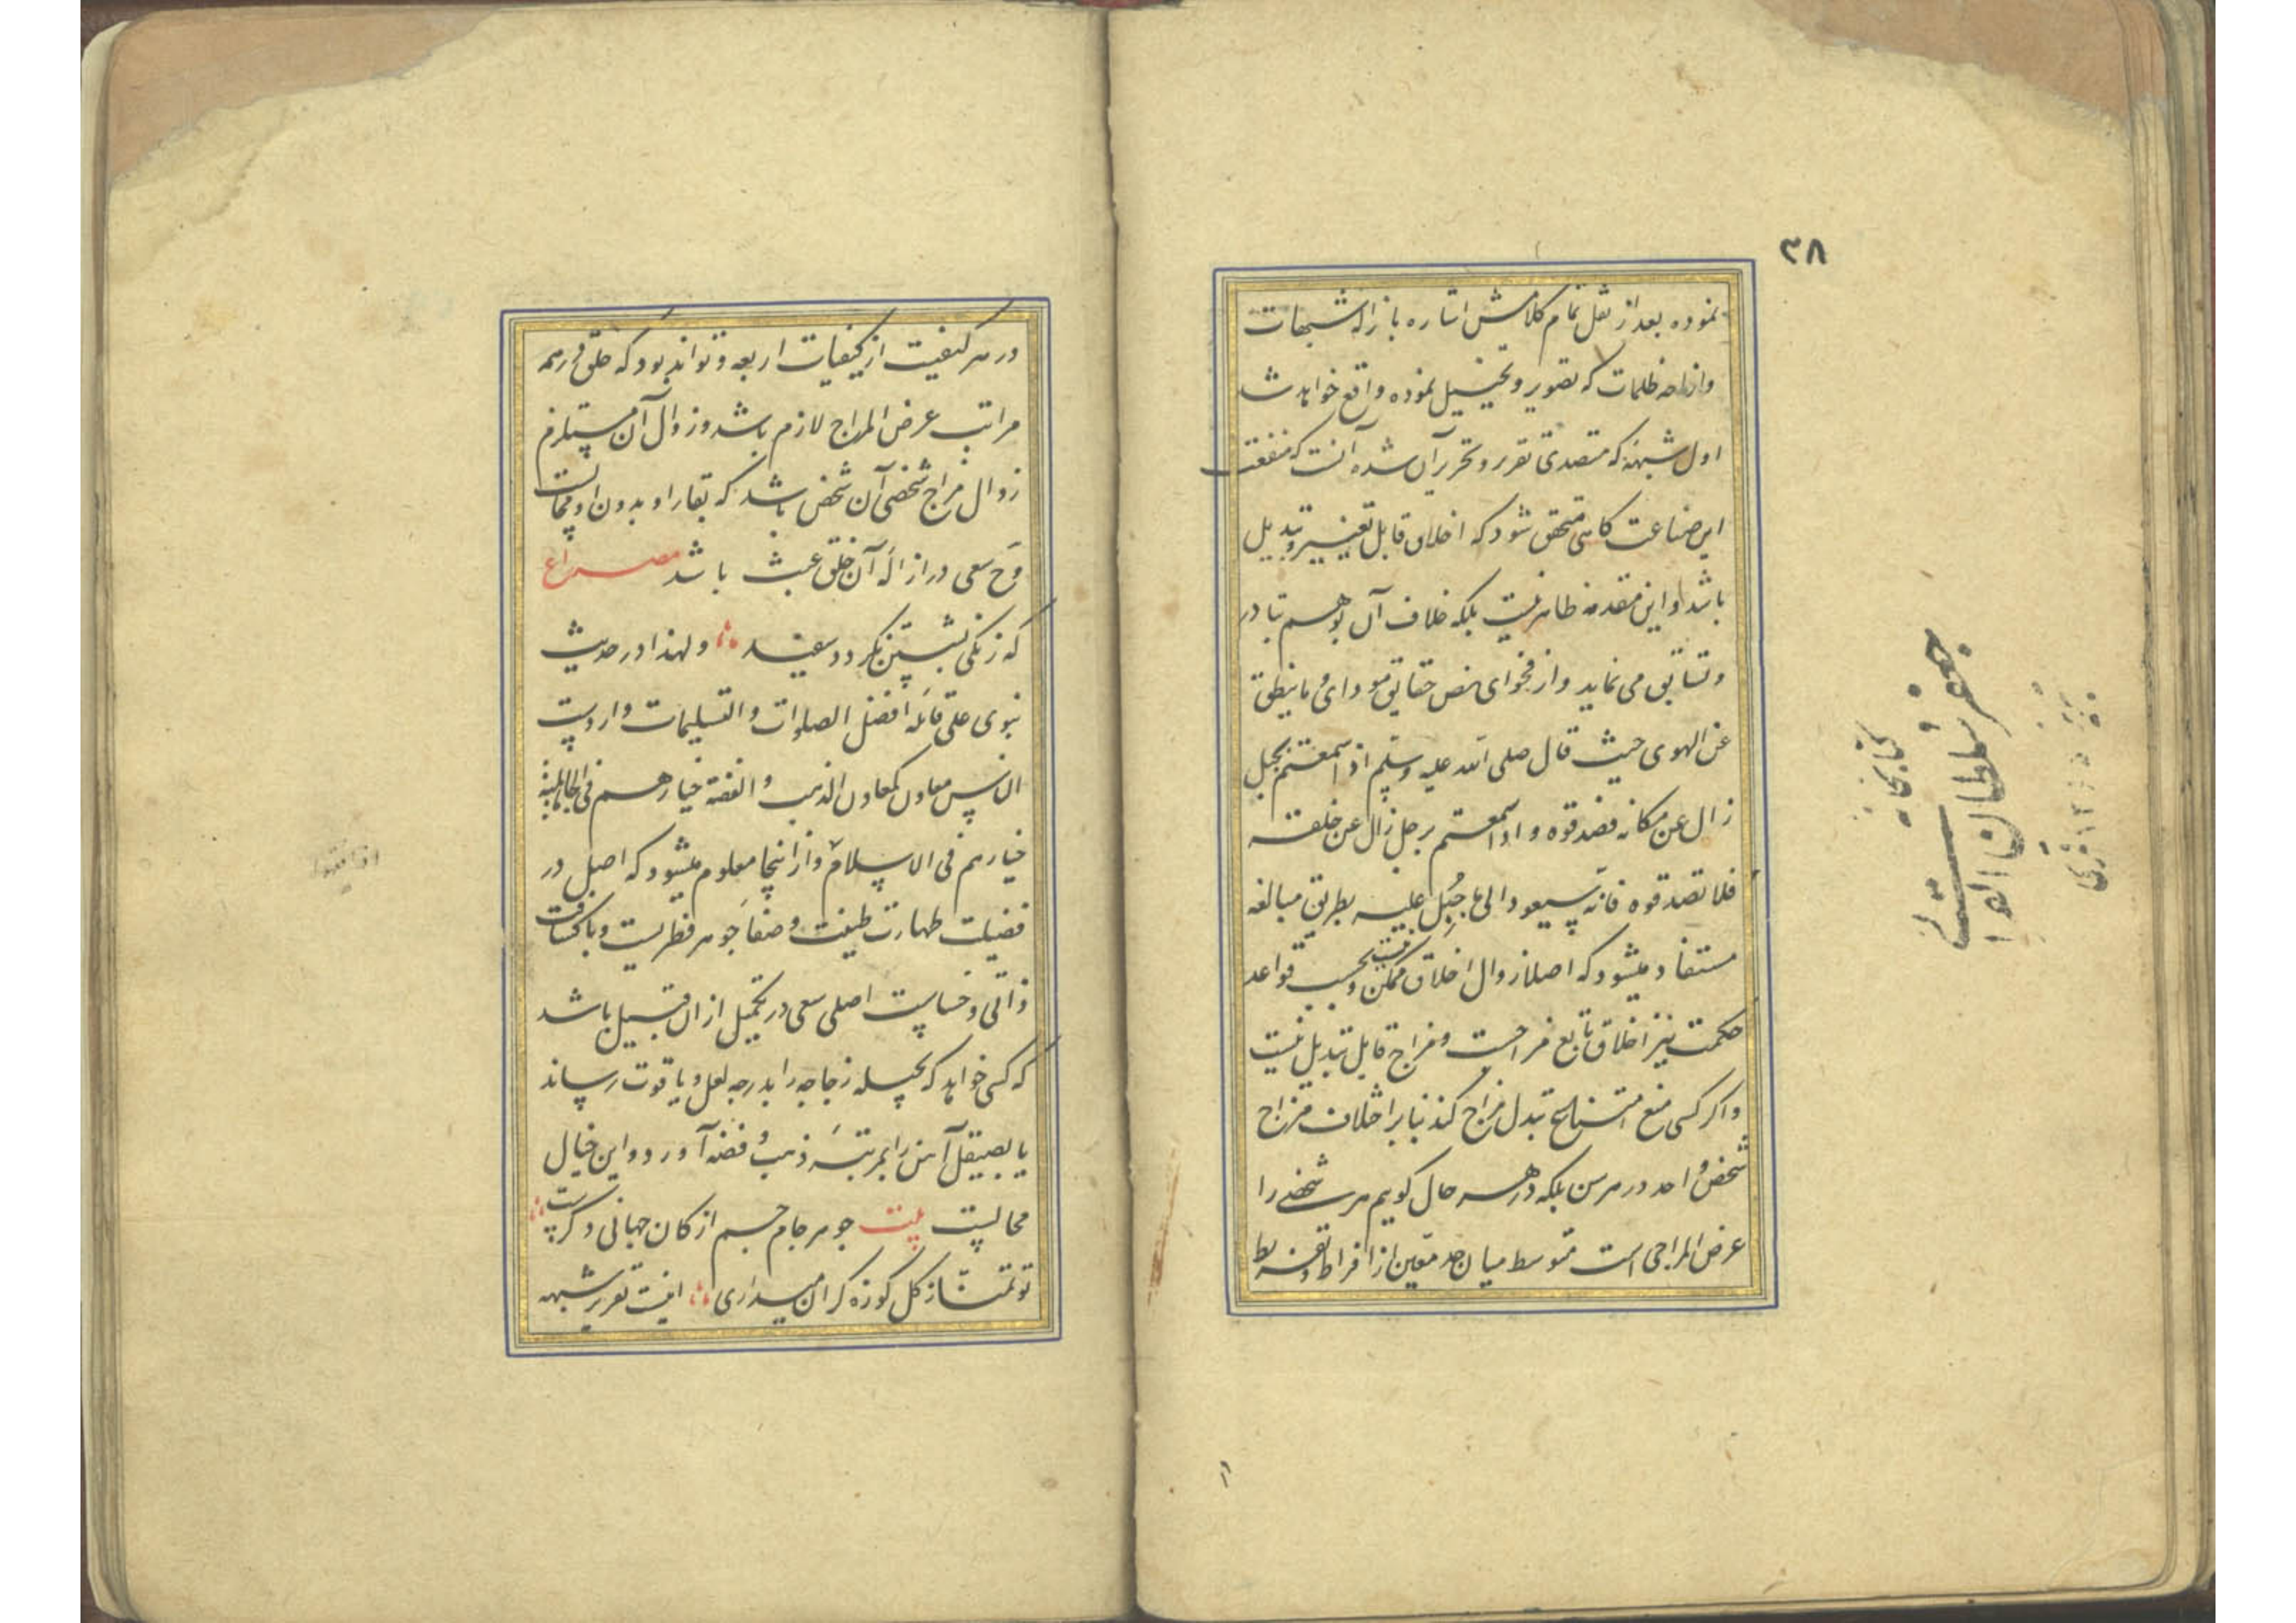 ۳۸
نموده بعد از نقل تمام کلامش اشاره بازاله شبهات
وازاحه ظلمات که تصویر و تخییل نموده واقع خواهد شد
اول شبهه که متصدی تقریر و تحریر آن شده آنست که منفعت
این صناعت کاهی متحقق شود که اخلاق قابل تغییر و تبدیل
باشد و این مقدمه ظاهر نیست بلکه خلاف آن بوهم تبادر
و تسابق می نماید و از فحوای نص حقایق مودای و ما ینطق
عن الهوی حیث قال صلی الله علیه وسلم اذا سمعتم بجبل
زال عن مکانه فصدقوه و اذا سمعتم برجل زال عن خلقه
فلا تصدقوه فانه سیعود الی ما جبل علیه بطریق مبالغه
مستفاد میشود که اصلا زوال اخلاق ممکن نیست و بحسب قواعد
حکمت نیز اخلاق تابع مزاجست و مزاج قابل تبدیل نیست
و اکر کسی منع امتناع تبدل مزاج کند بنابر اختلاف مزاج
شخص واحد در هر سن بلکه در هر حال کویم هر شخصی را
عرض المزاجی است متوسط میان حد معین از افراط و تفریط
کتابخانه
جعفر سلطان القرائی
در هر کیفیت از کیفیات اربعه و تواند بود که خلقی در همه
مراتب عرض المزاج لازم باشد و زوال آن مستلزم
زوال مزاج شخصی آن شخص باشد که بقاء او بدون او محالست
و ح سعی در ازاله آن خلق عبث باشد مصراع
که زنکی بشستن نکردد سفید و لهذا در حدیث
نبوی علی قائله افضل الصلوات و التسلیمات واردست
الناس معادن کمعادن الذهب و الفضة خیارهم فی الجاهلیة
خیارهم فی الاسلام و از اینجا معلوم میشود که اصل در
فضیلت طهارت طینت و صفاء جوهر فطریست و با کثافت
ذاتی و خساست اصلی سعی در تکمیل از ان قبیل باشد
که کسی خواهد که بحیله زجاجه را بدرجه لعل و یاقوت رساند
یا بصیقل آهن را بمرتبه ذهب و فضه آورد و این خیال
محالست بیت جوهر جام جم از کان جهانی دکرست
تو تمنا ز کل کوزه کران میداری اینست تقریر شبهه